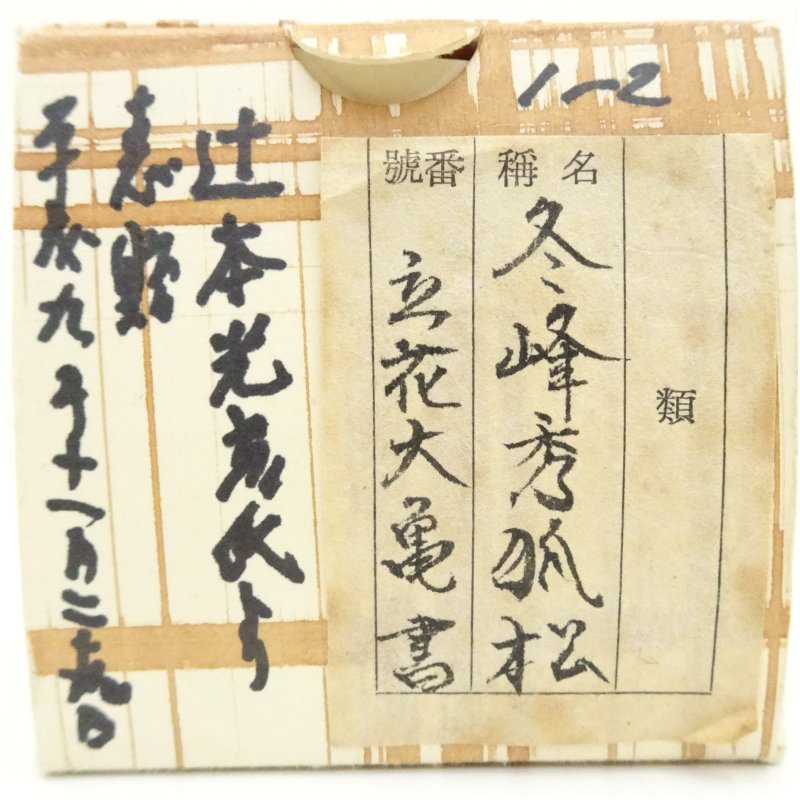 1-2
類
名稱
冬峰秀孤松
番號
立花大亀書
辻本光 氏より
恵贈
平成九年十一月